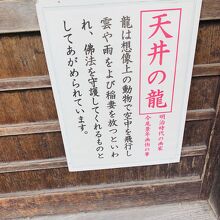 天井の龍
明治時代の画家
今尾景年画伯の筆
龍は想像上の動物で空中を飛行し
雲や雨をよび稲妻を放つといわ
れ、佛法を守護してくれるものと
してあがめられています。